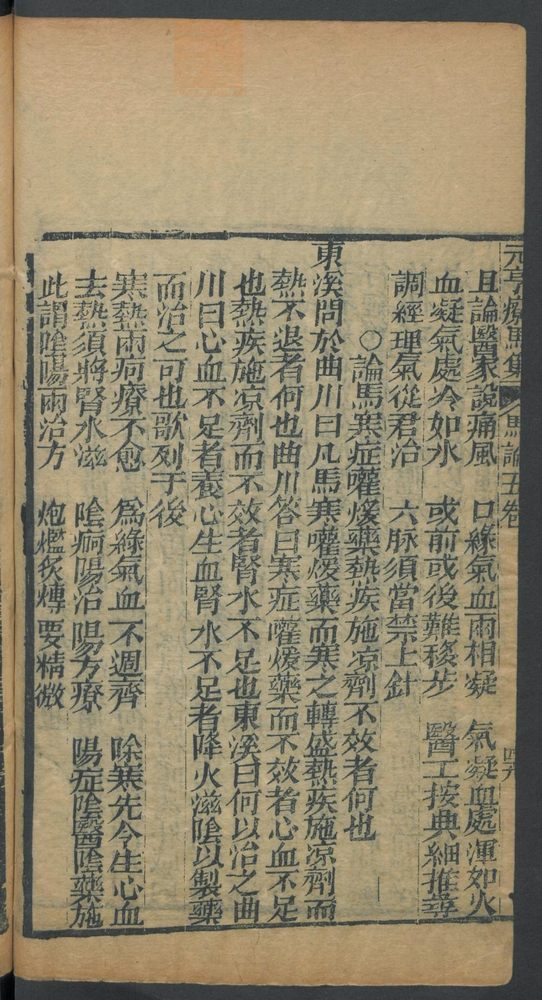 元亨療馬集 馬論五卷 四六
且論醫家說痛風 口緣氣血兩相凝 氣凝血處渾如火
血凝氣處冷如水 或前或後難移步 醫工按典細推尋
調經理氣從君治 六脉須當禁上針
○論馬寒症嚾煖藥熱疾施凉劑不效者何也
東溪問於曲川曰凡馬寒嚾煖藥而寒之轉盛熱疾施凉劑而
熱不退者何也曲川答曰寒症嚾煖藥而不效者心血不足
也熱疾施凉劑而不效者腎水不足也東溪曰何以治之曲
川曰心血不足者養心生血腎水不足者降火滋陰以製藥
而治之可也歌列于後
寒熱兩疴療不愈 爲緣氣血不週齊 除寒先令生心血
去熱須將腎水滋 陰痾陽治陽方療 陽症陰醫陰藥施
此謂陰陽兩治方 炮爁炙煿要精微